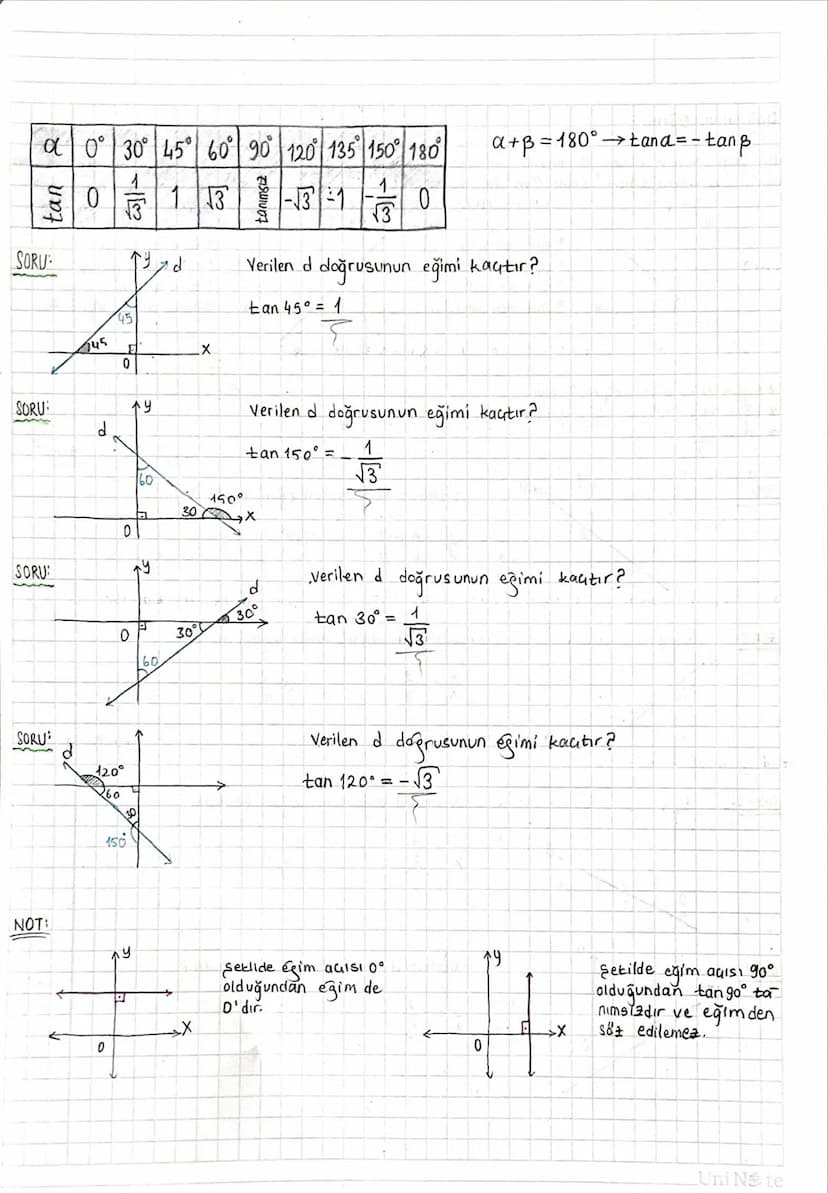 α 0° 30° 45° 60° 90° 120° 135° 150° 180°
tan 0 1/√3 1 √3 tanımsız -√3 -1 -1/√3 0
α+β=180° → tanα=-tanβ
SORU:
y d
Verilen d doğrusunun eğimi kaçtır?
tan 45° = 1
45
45
x
0
SORU:
y
d
Verilen d doğrusunun eğimi kaçtır?
tan 150° = -1/√3
60
150°
30
x
0
SORU:
y
d
Verilen d doğrusunun eğimi kaçtır?
30°
tan 30° = 1/√3
0
30°
60
SORU:
d
Verilen d doğrusunun eğimi kaçtır?
120°
tan 120° = -√3
60
30
150°
NOT:
y
x
0
Şekilde eğim açısı 0°
olduğundan eğim de
0'dır.
y
x
0
Şekilde eğim açısı 90°
olduğundan tan90° ta-
nımsızdır ve eğimden
söz edilemez.
UniNote